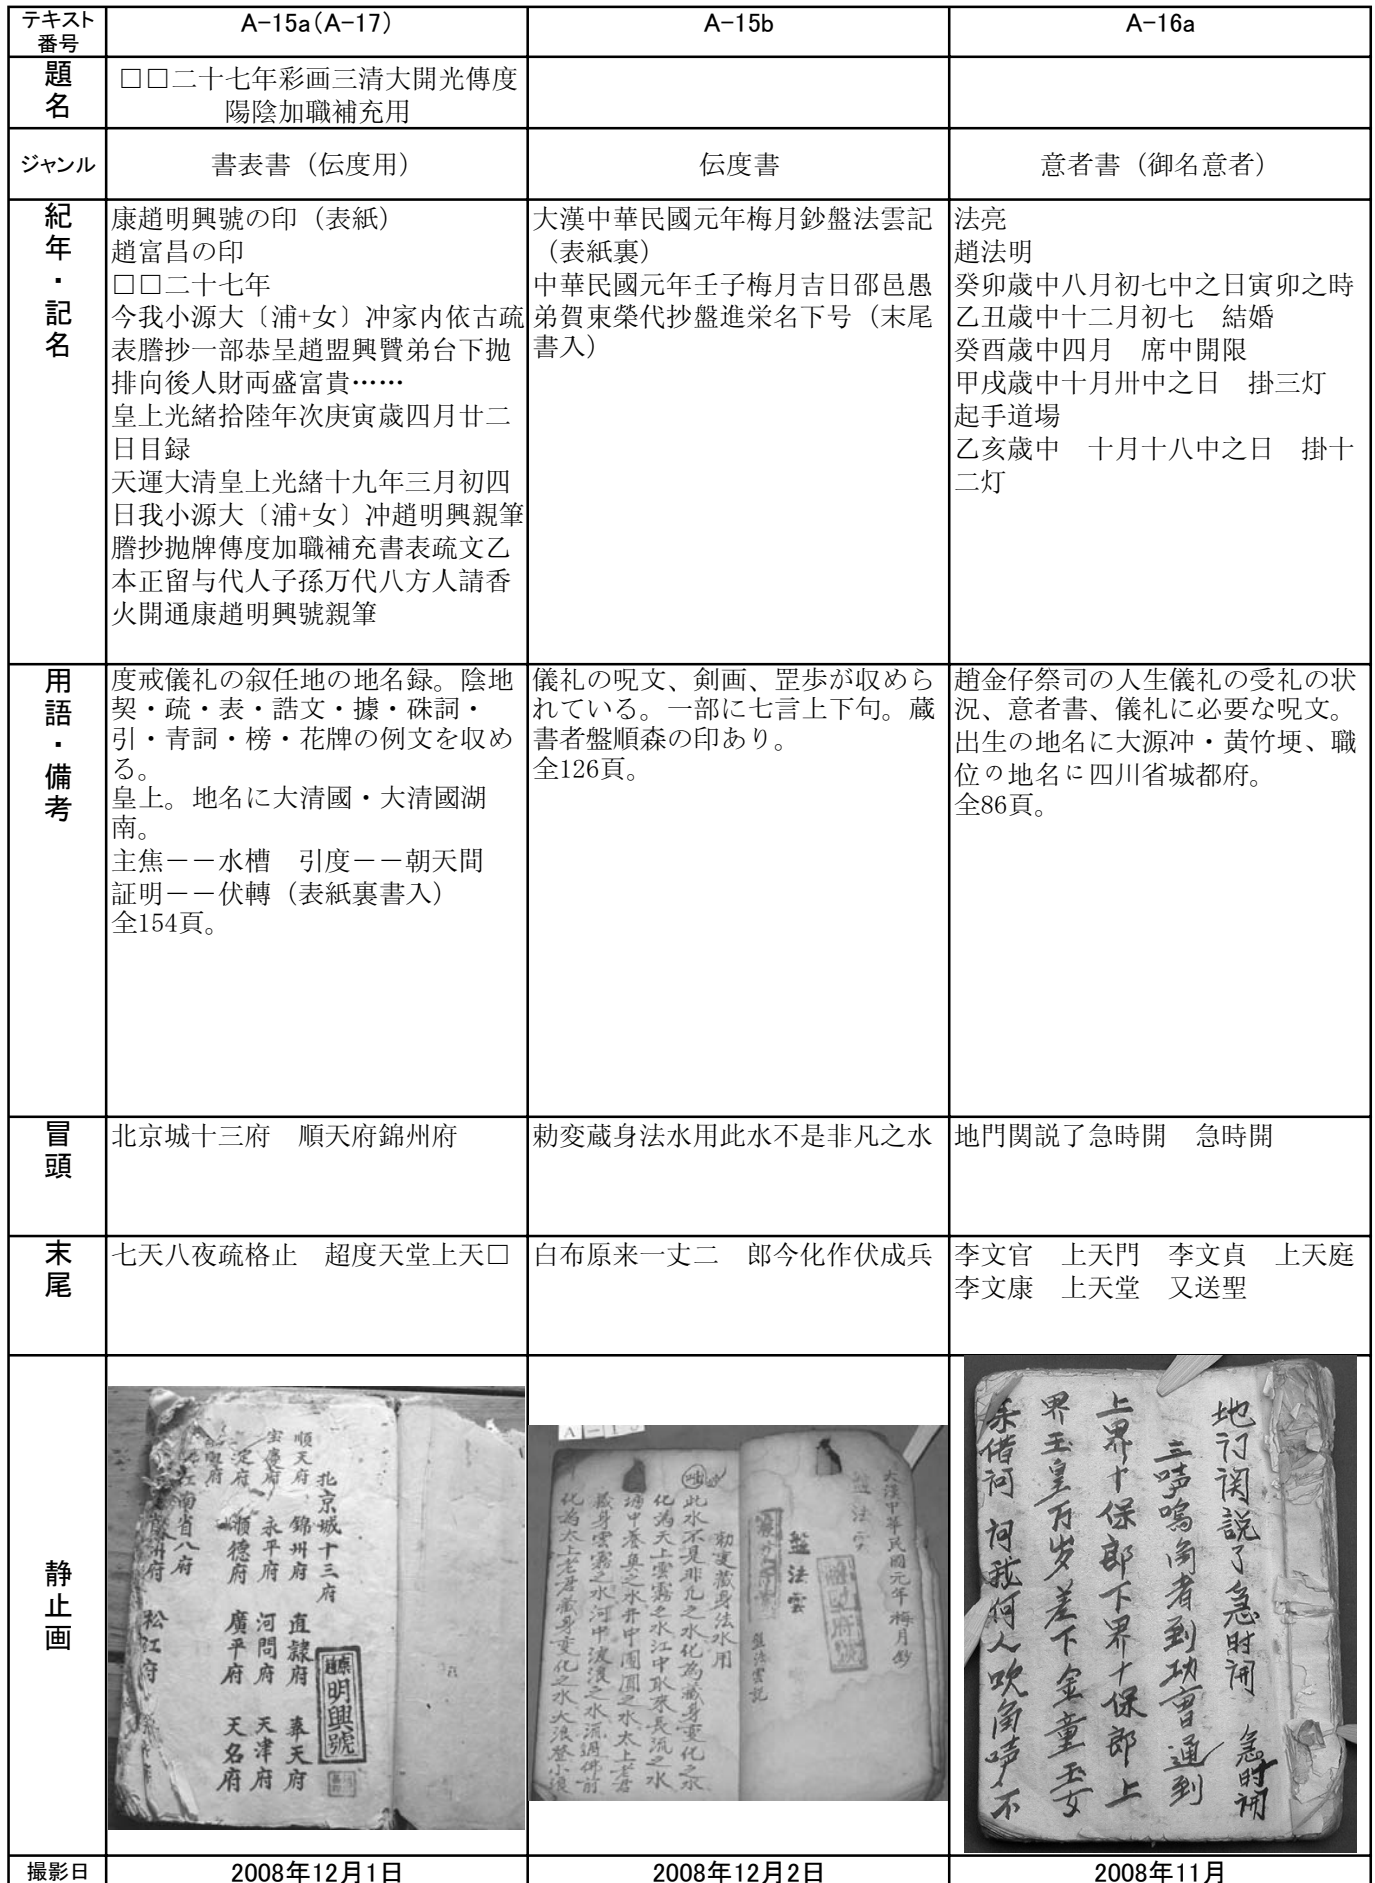 テキスト番号
A-15a(A-17)
A-15b
A-16a
題名
□□二十七年彩画三清大開光傳度
陽陰加職補充用
ジャンル
書表書（伝度用）
伝度書
意者書（御名意者）
紀年・記名
康趙明興號の印（表紙）
趙富昌の印
□□二十七年
今我小源大〔浦+女〕冲家内依古疏
表謄抄一部恭呈趙盟興賢弟台下抛
排向後人財両盛富貴……
皇上光緒拾陸年次庚寅歳四月廿二
日目録
天運大清皇上光緒十九年三月初四
日我小源大〔浦+女〕冲趙明興親筆
謄抄抛牌傳度加職補充書表疏文乙
本正留与代人子孫万代八方人請香
火開通康趙明興號親筆
大漢中華民國元年梅月鈔盤法雲記
（表紙裏）
中華民國元年壬子梅月吉日邵邑愚
弟賀東榮代抄盤進栄名下号（末尾
書入）
法亮
趙法明
癸卯歳中八月初七中之日寅卯之時
乙丑歳中十二月初七　結婚
癸酉歳中四月　席中開限
甲戌歳中十月卅中之日　掛三灯
起手道場
乙亥歳中　十月十八中之日　掛十
二灯
用語・備考
度戒儀礼の叙任地の地名録。陰地
契・疏・表・誥文・據・硃詞・
引・青詞・榜・花牌の例文を収め
る。
皇上。地名に大清國・大清國湖
南。
主焦－－水槽　引度－－朝天間
証明－－伏轉（表紙裏書入）
全154頁。
儀礼の呪文、剣画、罡歩が収めら
れている。一部に七言上下句。蔵
書者盤順森の印あり。
全126頁。
趙金仔祭司の人生儀礼の受礼の状
況、意者書、儀礼に必要な呪文。
出生の地名に大源冲・黄竹埂、職
位の地名に四川省城都府。
全86頁。
冒頭
北京城十三府　順天府錦州府
勅変蔵身法水用此水不是非凡之水
地門関説了急時開　急時開
末尾
七天八夜疏格止　超度天堂上天□
白布原来一丈二　郎今化作伏成兵
李文官　上天門　李文貞　上天庭
李文康　上天堂　又送聖
静止画
北京城十三府
順天府　錦州府　直隸府　奉天府
宝慶府　永平府　河間府　天津府
定府　順德府　廣平府　天名府
南省八府
松江府
明興號
大漢中華民國元年梅月鈔
盤法雲
盤法雲
盤法雲記
勅变藏身法水用
此水不是非凡之水化為藏身变化之水
化為天上雲霧之水江中取來長流之水
塘中養魚之水井中團圓之水太上老君
藏身雲霧之水河中波浪之水流過佛前
化為太上老君藏身变化之水大浪登小浪
地门関説了急时闭　急时闭
三声鳴角者到功曹通到
上界十保郎下界十保郎上
界玉皇万岁差下金童玉女
何我何人吹角声不
撮影日
2008年12月1日
2008年12月2日
2008年11月